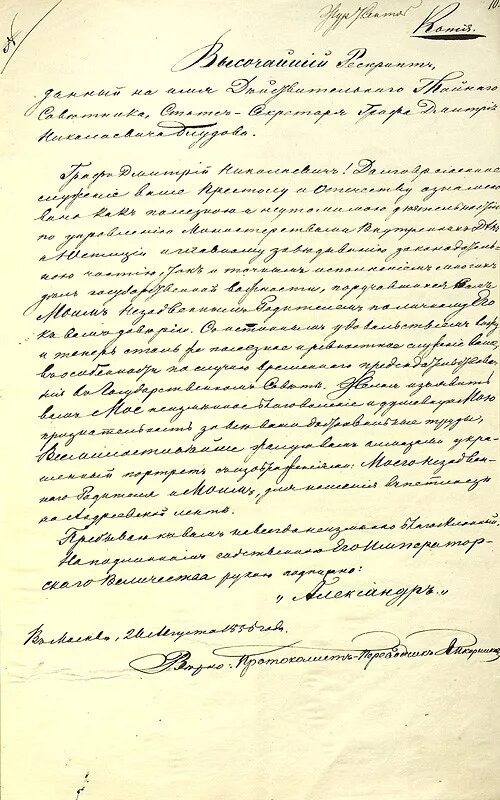 Копія.
Высочайшій Рескриптъ,
данный на имя Дѣйствительнаго Тайнаго
Совѣтника, Статсъ-Секретаря Графа Дмитрія
Николаевича Блудова.
Графъ Дмитрій Николаевичъ! Долговременное
служеніе ваше Престолу и Отечеству ознамено-
вано какъ полезною и неутомимою дѣятельностію
по управленію Министерствами Внутреннихъ Дѣлъ
и Юстиціи и главному завѣдыванію законодатель-
ною частію, такъ и точнымъ исполненіемъ многихъ
дѣлъ государственной важности, поручавшихся вамъ
Моимъ Незабвеннымъ Родителемъ по личному Его
къ вамъ довѣрію. Съ истиннымъ удовольствіемъ вижу
и теперь столь же полезное и ревностное служеніе ваше,
въ особенности по случаю временнаго предсѣдательствова-
нія въ Государственномъ Совѣтѣ. Желая изъявить
вамъ Мое неизмѣнное благоволеніе и душевную Мою
признательность за всѣ ваши достохвальные труды,
Всемилостивѣйше жалую вамъ алмазами укра-
шенный портретъ съ изображеніями Моего Незабвен-
наго Родителя и Моимъ, для ношенія въ петлицѣ
на Андреевской лентѣ.
Пребываю къ вамъ навсегда неизмѣнно благосклонный.
На подлинномъ собственною Его Император-
скаго Величества рукою подписано:
„Александръ."
Въ Москвѣ, 26 Августа 1856 года.
Протоколистъ-Переводчикъ